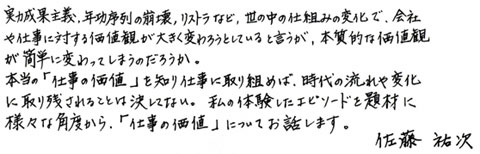 実力成果主義、年功序列の崩壊、リストラなど、世の中の仕組みの変化で、会社
や仕事に対する価値観が大きく変わろうとしていると言うが、本質的な価値観
が簡単に変わってしまうのだろうか。
本当の「仕事の価値」を知り仕事に取り組めば、時代の流れや変化
に取り残されることは決してない。私の体験したエピソードを題材に
様々な角度から、「仕事の価値」についてお話します。
佐藤 祐次